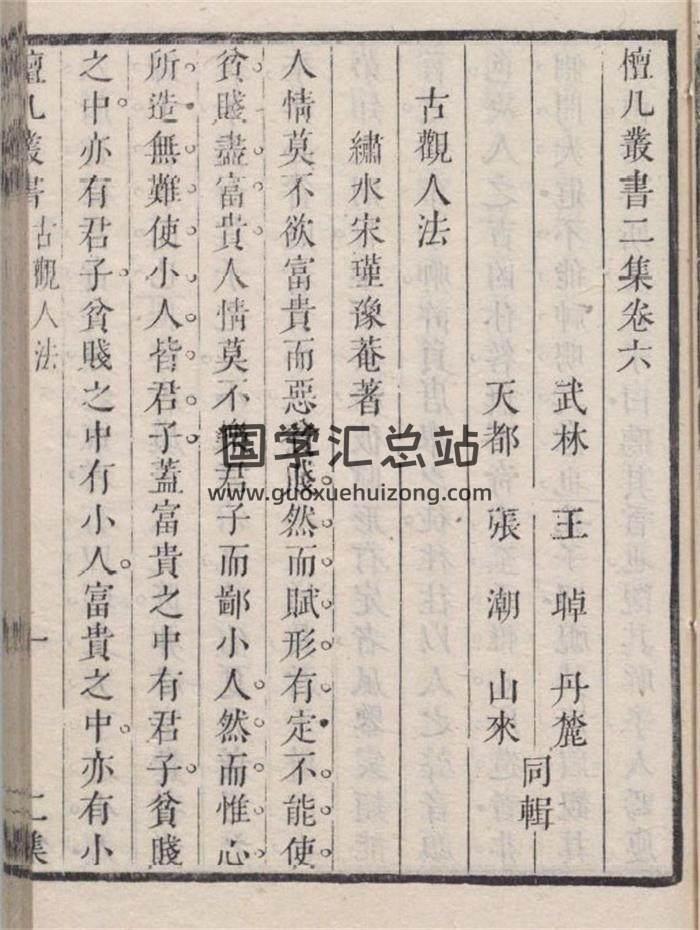 檀几叢書二集卷六
武林 王晫 丹麓
天都 張潮 山來
同輯
古觀人法
繡水宋瑾豫菴著
人情莫不欲富貴而惡貧賤然而賦形有定不能使
貧賤盡富貴人情莫不樂君子而鄙小人然而惟心
所造無難使小人皆君子蓋富貴之中有君子貧賤
之中亦有君子貧賤之中有小人富貴之中亦有小
檀几叢書 古觀人法 一 二集
国学汇总站
www.guoxuehuizong.com